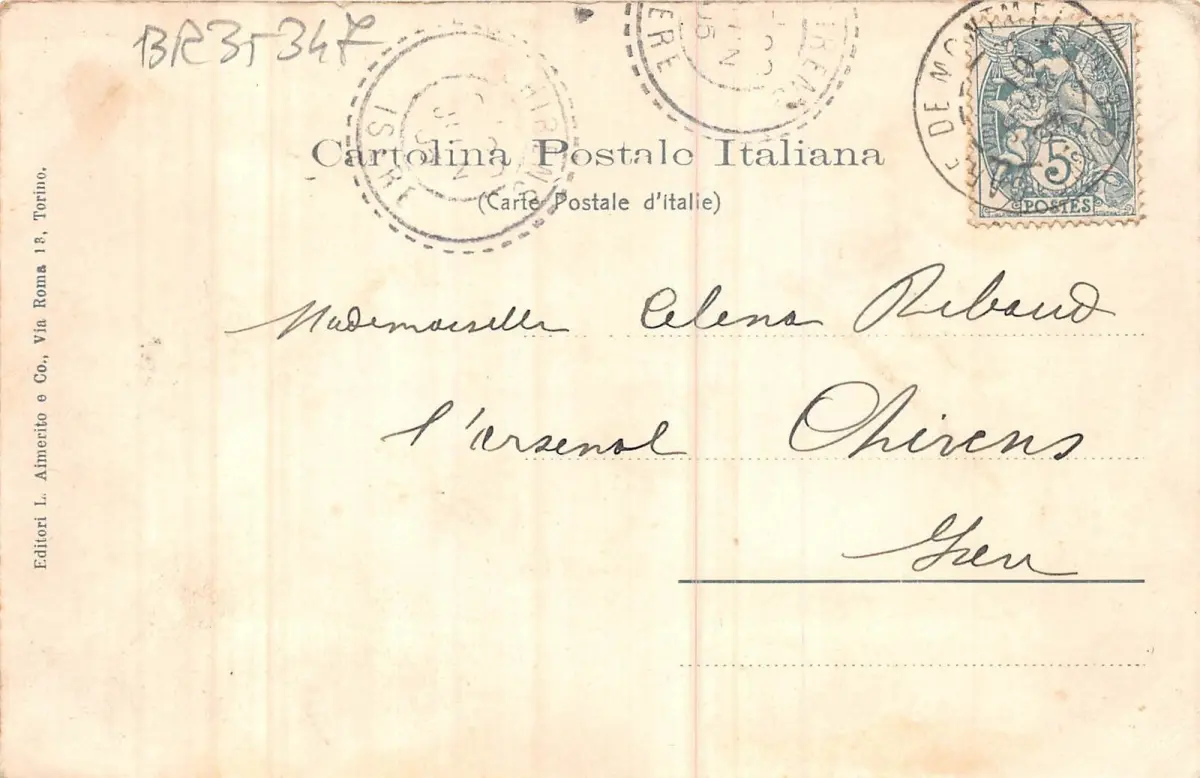 BR35347
CHIRENS
ISERE
CHIRENS
ISERE
DE MONTMELIAN
5
POSTES
Cartolina Postale Italiana
(Carte Postale d'italie)
Mademoiselle Celena Ribaud
l'arsenal Chirens
Isère
Editori L. Aimerito e Co., Via Roma 18, Torino.